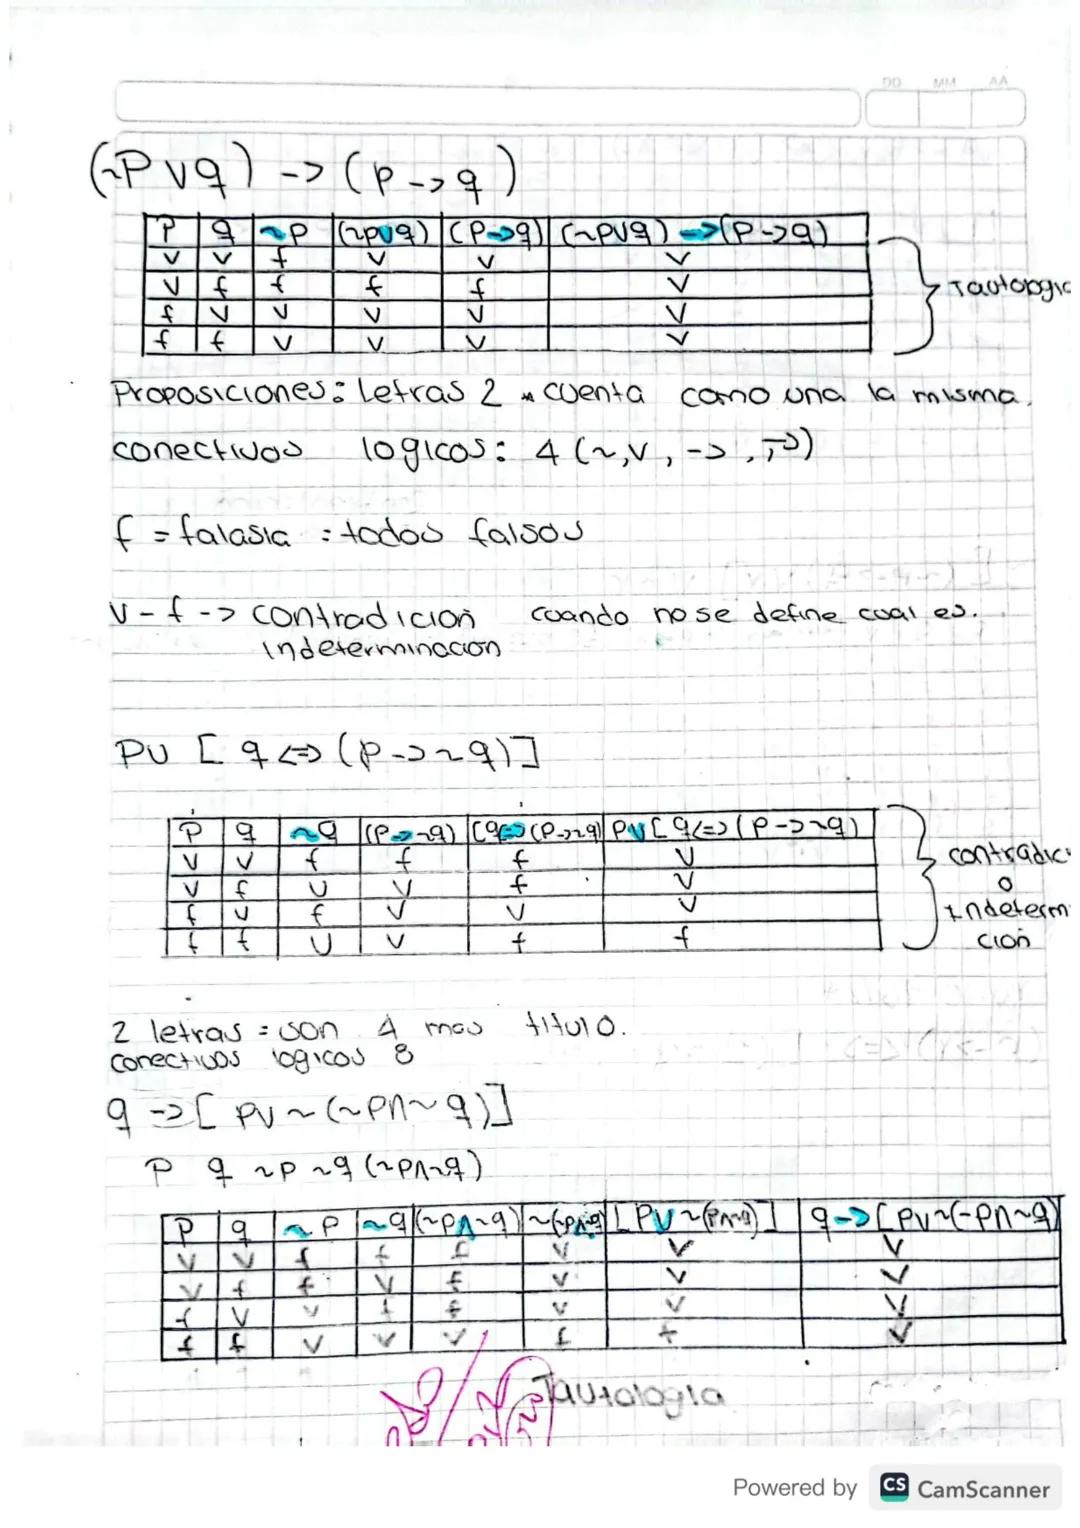 DD MM AA
(~P v q) -> (P -> q)
P q ~P (~p v q) (P -> q) (~p v q) -> (P -> q)
v v f v v v
v f f f f v
f v v v v v
f f v v v v
Tautologic
Proposiciones: Letras 2 * cuenta como una la misma.
conectivos logicos: 4 (~, v, ->, ->)
f = falasia : todos falsos
v - f -> contradicion cuando no se define cual es.
indeterminacion
P v [q <=> (p -> ~q)]
P q ~q (P -> ~q) [q <=> (p -> ~q) P v [q <=> (P -> ~q)
v v f f f v
v f v v f v
f v f v v v
f f v v f f
contradic
o
Indeterm
cion
2 letras = son 4 mas titulo.
conectivos logicos 8
q -> [p v ~(~p ∧ ~q)]
P q ~p ~q (~p ∧ ~q)
P q ~P ~q (~p ∧ ~q) ~(~p ∧ ~q) [P v ~(P ∧ ~q)] q -> [p v ~(~p ∧ ~q)
v v f f f v v v
v f f v f v v v
f v v f f v v v
f f v v v f f v
Tautologia
Powered by CS CamScanner